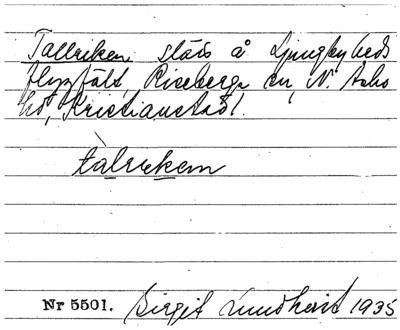 Talluken, släts å Ljungbyheds
flygfält, Riseberga sn, N. Åsbo
hd, Kristianstad l.
tàlrukem
Nr 5501. Birgit Lundkvist 1935